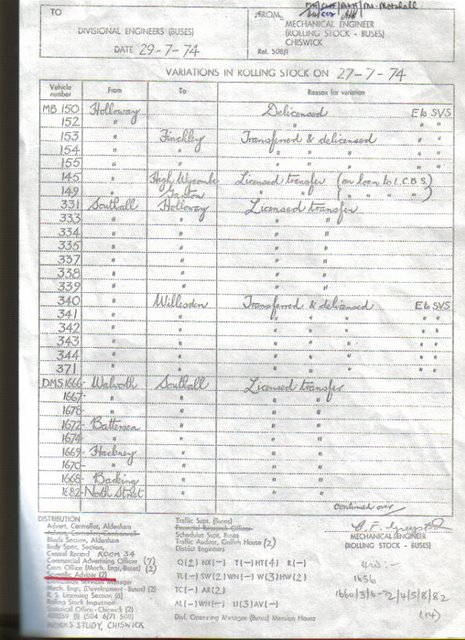 TO
DIVISIONAL ENGINEERS (BUSES)
DATE 29-7-74
FROM
MECHANICAL ENGINEER
(ROLLING STOCK - BUSES)
CHISWICK
Ref. 508/1
VARIATIONS IN ROLLING STOCK ON 27-7-74
Vehicle number From To Reason for variation
MB 150 Holloway Delicensed E to SVS
152 " " " "
153 " Finchley Transferred & delicensed " "
154 " " " " " " "
155 " " " " " " "
145 " High Wycombe Licensed transfer (on loan to L.C.B.S)
149 " Garston " " " " "
331 Southall Holloway Licensed transfer
333 " " " "
334 " " " "
335 " " " "
337 " " " "
338 " " " "
339 " " " "
340 " Willesden Transferred & delicensed E to SVS
341 " " " " " " "
342 " " " " " " "
343 " " " " " " "
344 " " " " " " "
371 " " " " " " "
DMS 1666 Walworth Southall Licensed transfer
1667 " " " "
1678 " " " "
1672 Battersea " " "
1674 " " " "
1669 Hackney " " "
1670 " " " "
1668 Barking " " "
1682 North Street " " "
Continued over
DISTRIBUTION
Advert. Controller, Aldenham
Body Spec. Section,
Central Record ROOM 34
Commercial Advertising Officer (7)
Cars Office (Mech. Engr. Buses) (2)
Scientific Adviser (2)
Mech. Engr. (Development - Buses) (2)
R. S. Licensing Section (5)
Rolling Stock Inspector
Statistical Office - Chiswick (2)
WORK STUDY, CHISWICK
Traffic Supt. (Buses)
Financial Research Officer
Schedules Supt. Buses
Traffic Auditor, Ensign House (2)
District Engineers
Q(2) NX(-) T(-) HT(4) R(-)
TL(-) SW(2) WN(-) W(3) HW(2)
TC(-) AR(2)
AL(-) WH(-) U(3) AV(-)
Divl. Operating Manager (Buses) Mansion House
MECHANICAL ENGINEER
(ROLLING STOCK - BUSES)
1656
(14)